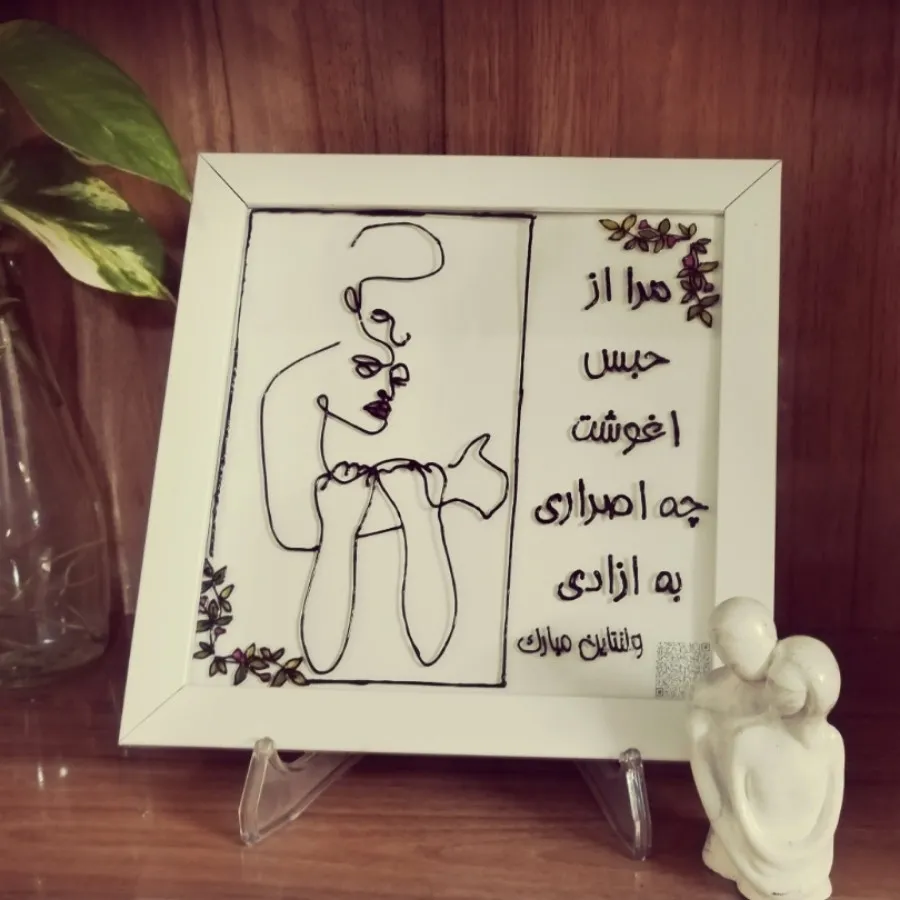 مرا از
حبس
اغوشت
چه اصراری
به ازادی
ولنتاین مبارک